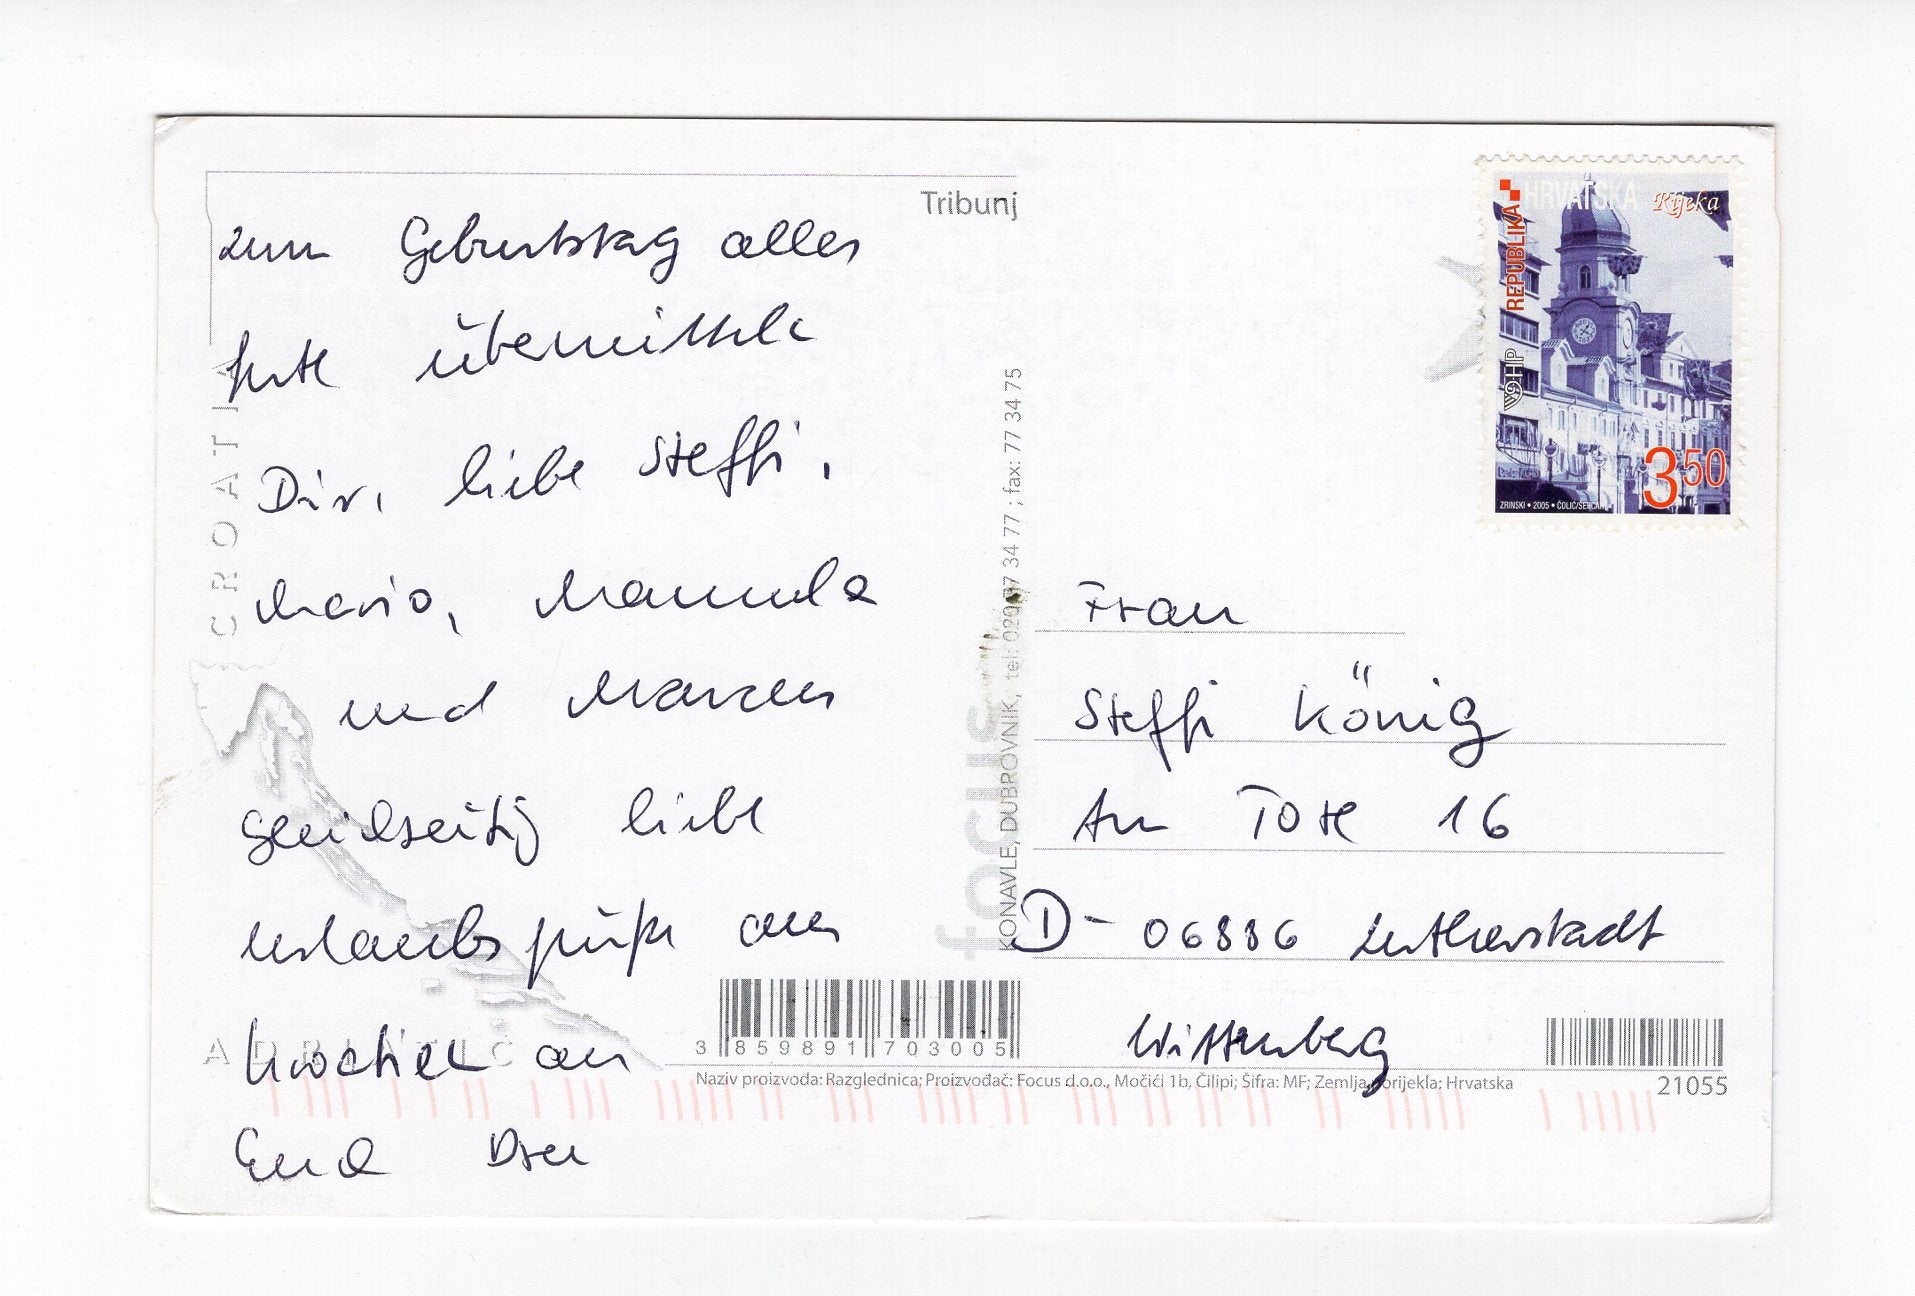 Tribunj
zum Geburtstag alles
Gute übermitteln
Dir, liebe Steffi,
Mario, Manuela
und Marcus
gleichzeitig liebe
Urlaubsgrüße aus
Kroatien an
Euch Drei
CROATIA
ADRIATIC
focus
KONAVLE, DUBROVNIK, tel: 020/77 34 77 ; fax: 77 34 75
REPUBLIKA
HRVATSKA
Rijeka
HP
3 50
ZRINSKI • 2005 • ČOLIĆ/ŠERCAR
Frau
Steffi König
Am Tore 16
D- 06886 Lutherstadt
Wittenberg
3 859891 703005
Naziv proizvoda: Razglednica; Proizvođač: Focus d.o.o., Močići 1b, Čilipi; Šifra: MF; Zemlja porijekla: Hrvatska
21055